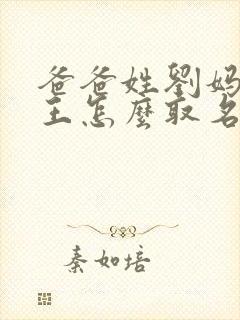 爸爸姓劉媽
王怎麼取名
秦如培